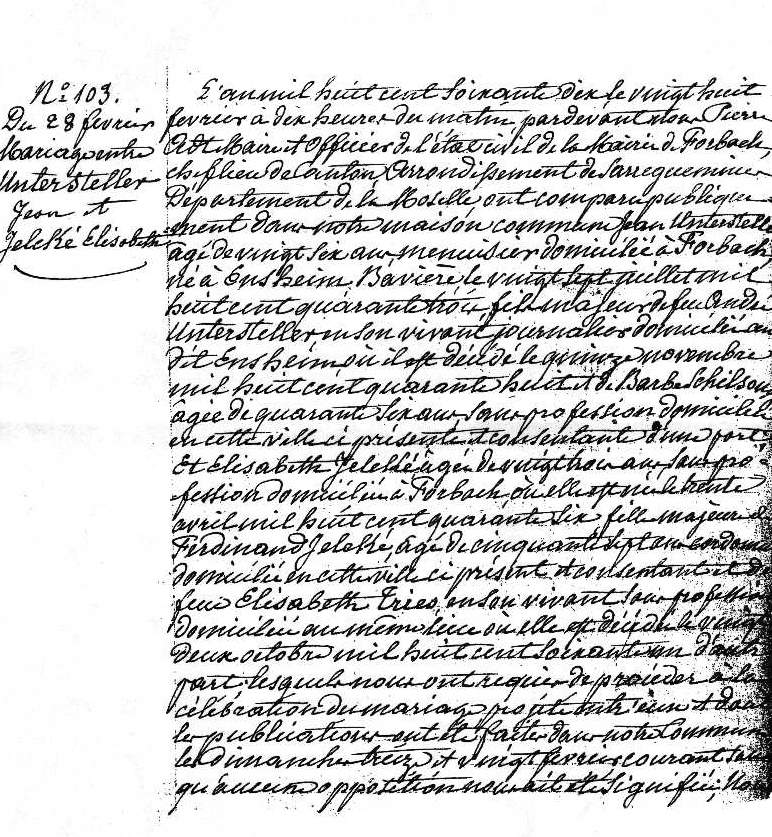 N.º 103.
Du 28 février
Mariage entre
Untersteller
Jean et
Jelcké Elisabeth
L'an mil huit cent soixante dix le vingt huit
fevrier à dix heures du matin pardevant nous Pierre
Adt Maire et Officier de l'état civil de la Mairie de Forbach,
chef lieu de canton, Arrondissement de Sarreguemines
Département de la Moselle ont comparu publique-
ment dans notre maison commune Jean Untersteller
âgé de vingt six ans menuisier domicilié à Forbach,
né à Ensheim, Bavière, le vingt sept juillet mil
huit cent quarante trois, fils majeur de feu André
Untersteller en son vivant journalier domicilié au
dit Ensheim où il est décédé le quinze novembre
mil huit cent quarante huit et de Barbe
âgée de quarante six ans sans profession domiciliée
en cette ville ci présente et consentante d'une part
Et Elisabeth Jelcké âgée de vingt trois ans sans pro-
fession domiciliée à Forbach, où elle est née le trente
avril mil huit cent quarante six fille majeure de
Ferdinand Jelcké, âgé de cinquante sept ans
domicilié en cette ville ci présent et consentant et de
feue Elisabeth Tries, en son vivant sans profession
domiciliée au même lieu où elle est décédée le vingt
deux octobre mil huit cent soixante un d'autre
part. lesquels nous ont requis de procéder à la
célébration du mariage projété entr'eux et dont
les publications ont été faites dans notre Commune
les dimanches treize et vingt fevrier courant sans
qu'aucune opposition nous ait été signifiée, Nous